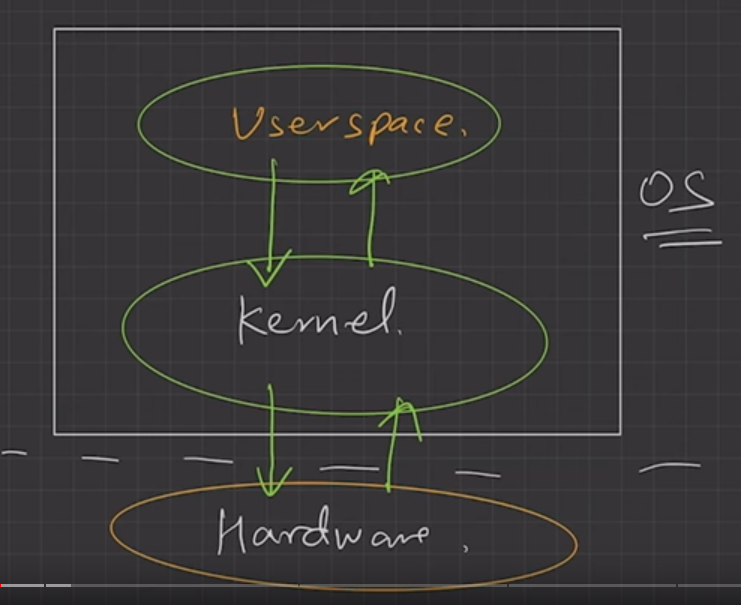 Userspace.
OS
Kernel.
Hardware.